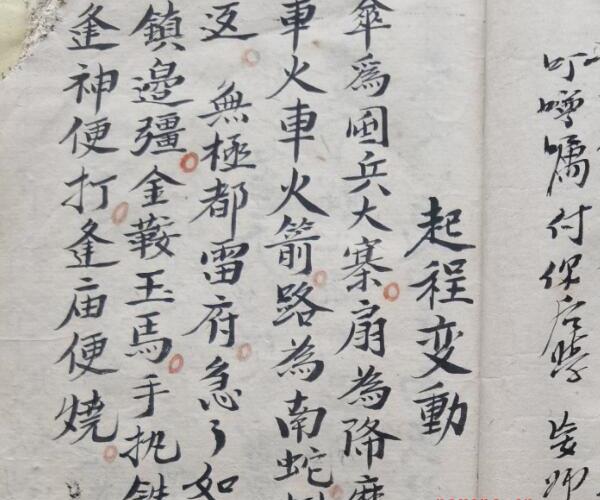 叮嚀囑付保后學
起程变動
傘爲囤兵大寨扇為降魔
車火車火箭路為南蛇
返無極都雷府急〻如
鎮邊彊金鞍玉馬手执鉄
逢神便打逢庙便燒